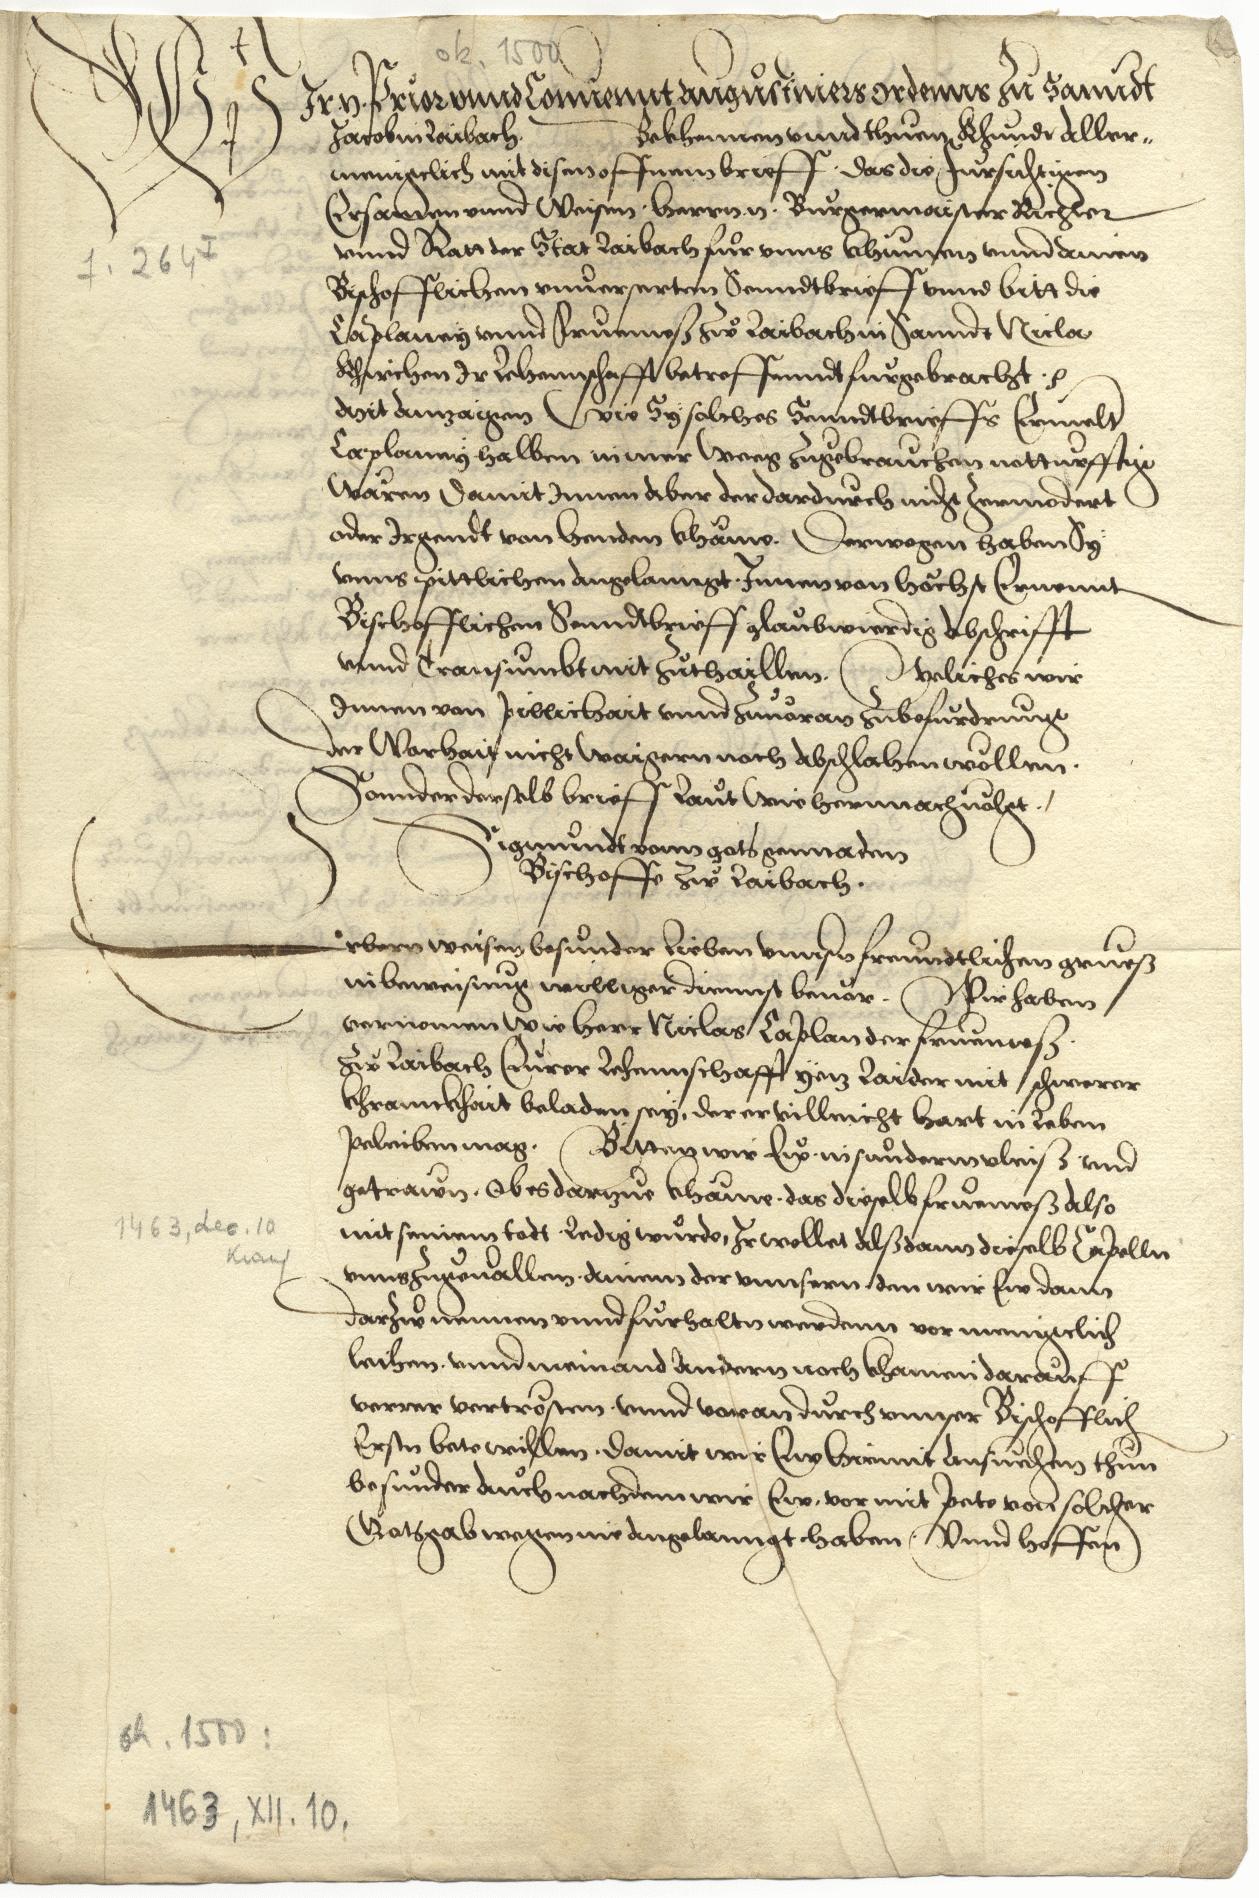 ok. 1500
Wir N. Prior vnnd Conuennt Augustiniers Ordenns zu Sanndt
Jacob in Laibach. Bekhennen vnnd thuen khundt Aller-
menigclich mit disem offnem brieff. das die Fursichtigen
Ersamen vnnd Weisen. herrn. n. Burgermaister Richter
vnnd Ratt der Stat Laibach fur vnns khumen vnnd ainen
Bischofflichen vnuerserten Senndtbrieff vnnd bitt die
Caplaney vnnd Fruemess zw Laibach in Sanndt Niclas
khirchen Ir Lehennschafft betreffenndt furgebracht.
Mit anzaigen Wie Sy solches Senndtbrieffs Ermelt
Caplaney halben in mer Weeg zugebrauchen notturfftig
Waren Damit Innen aber der dardurch nicht zermodert
oder Irgendt von henden khame. Derwegen haben Sy
vnns pittlichen angelanngt. Innen von höchst Ernennt
Bischofflichen Senndtbrieff glaubwierdig abschrifft
vnnd Transumbt mit zuthaillen. Weliches wir
Innen von pillichait vnnd zuuoran zubefurdrung
der Warhait nicht Waigern noch abschlahen wöllen.
Sonnder derselb brieff Laut Wie hernnach uolgt.
Sigmundt vonn gots gennaden
Bischoffe zw Laibach.
Erbern weisen besunder Lieben vnnsern freundtlichen gruess
in beweisung williger diennst beuor. Wir haben
vernomen Wie herr Niclas Caplan der fruemess
zw Laibach Eurer Lehennschafft yetz Laider mit schwerer
khrannkhait beladen sey, der er villeicht hart in Leben
peleiben mag. Bitten wir Ew. in sunderm vleiss vnd
getrawn. Ob es darzue khäme. das dieselb fruemess also
mit seinem todt Ledig wurde, Ir wellet alssdann dieselb Capelln
vnns zugeuallen. ainem der vnnsern. den wir Ew dann
darzw nennen vnnd furhaltn werdenn vor menigclich
leihen. vnnd niemand Andern noch khainen darauff
verrer vertrösten. vnnd voran durch vnnser Bischofflich
Erstn bete willen. damit wir Ew hiemit Ansuechen thun
besunder auch nachdem wir Ew. vor mit pete von solcher
Gotsgab wegen nie angelanngt haben Vnnd hoffen
f. 264 I
1463, dec. 10
ok. 1500:
1463, XII. 10.